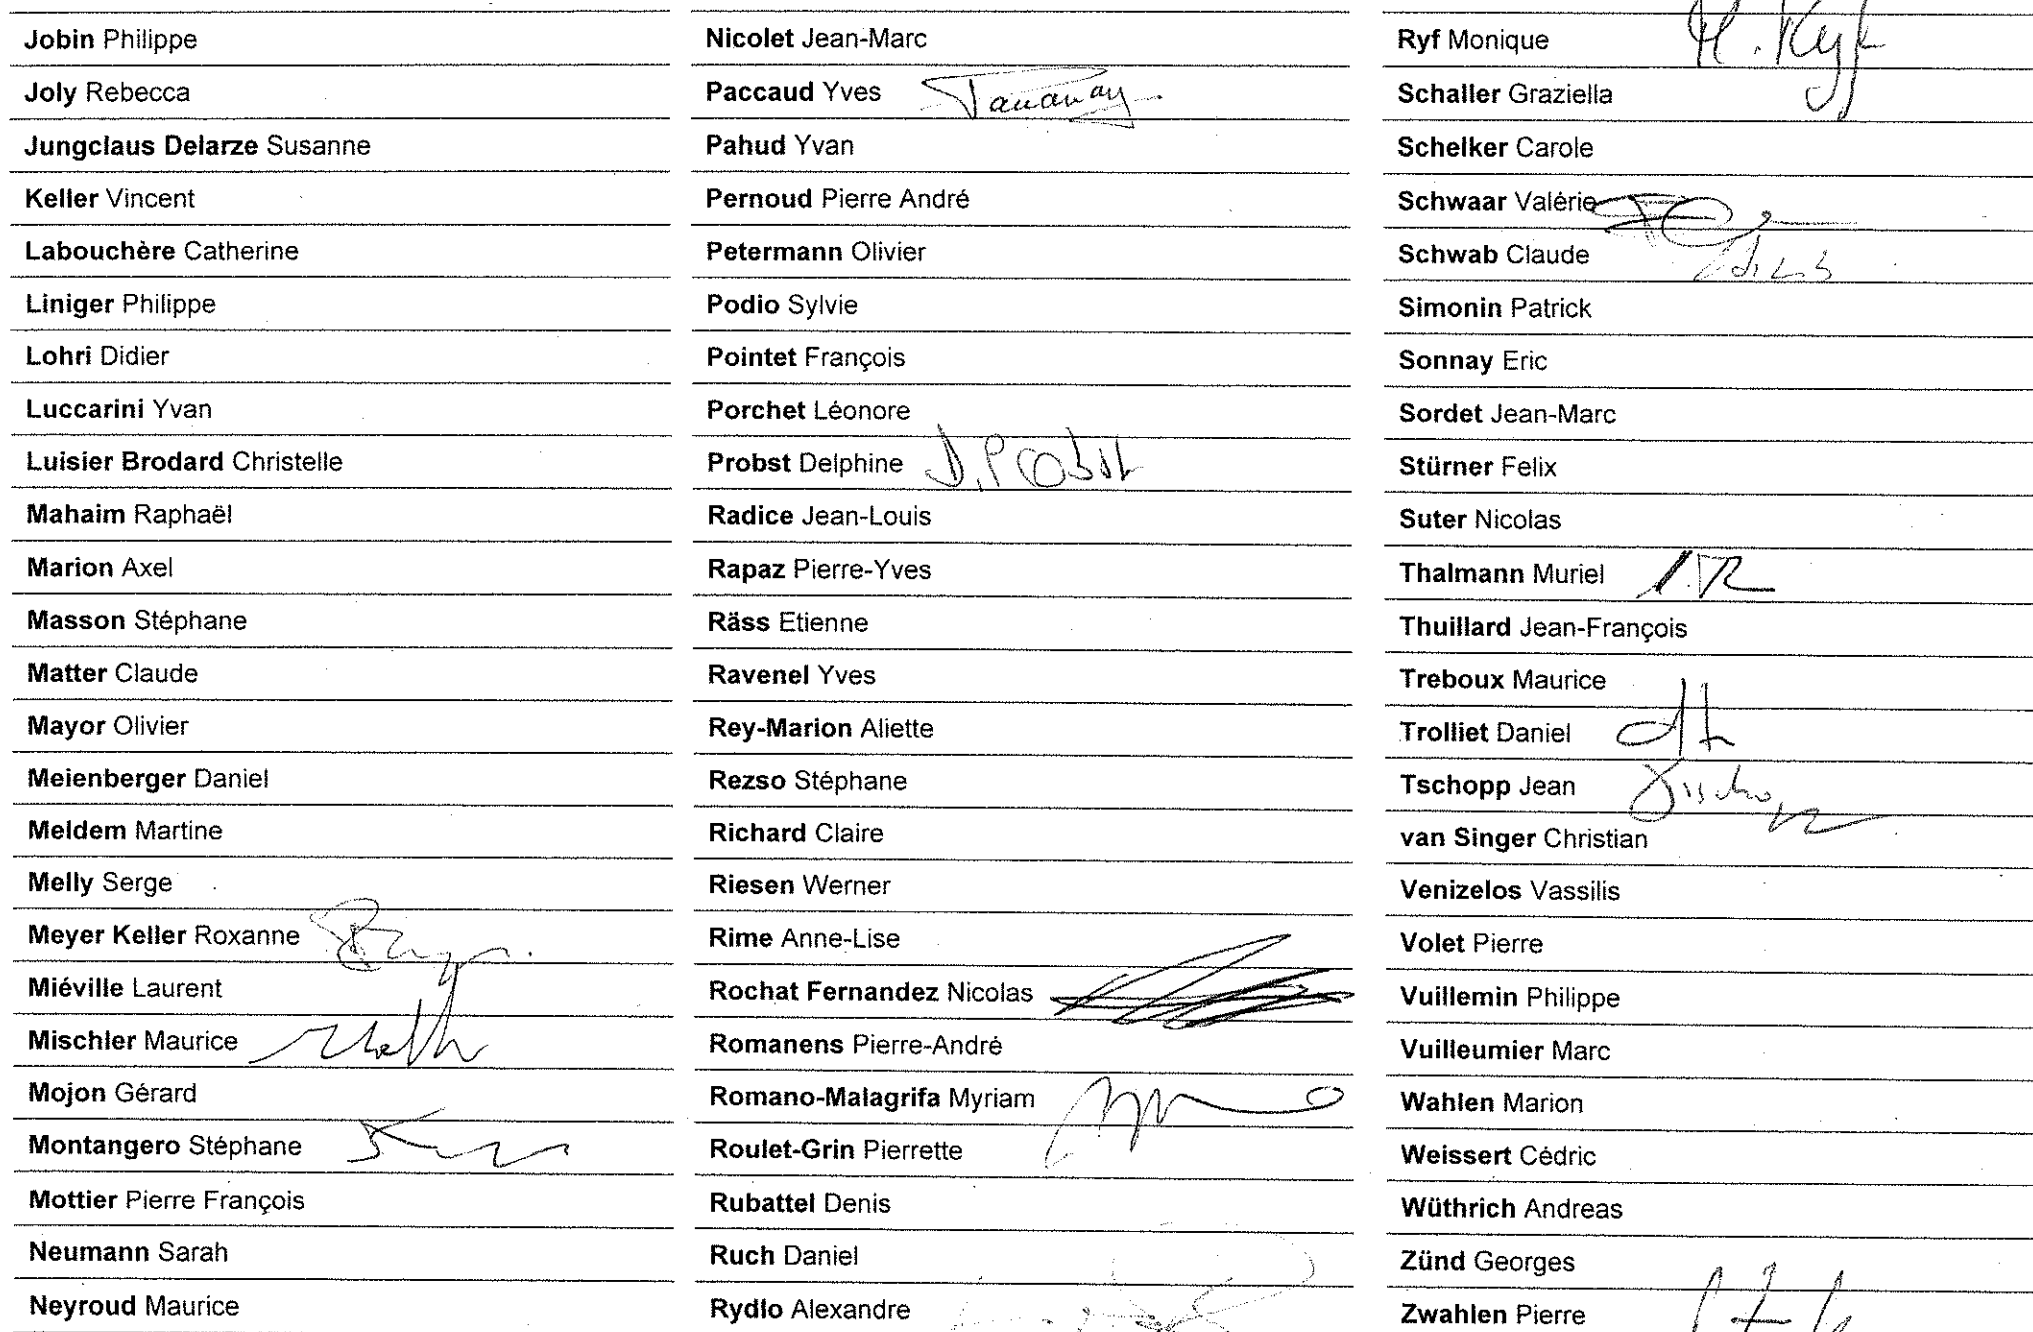 Jobin Philippe
Joly Rebecca
Jungclaus Delarze Susanne
Keller Vincent
Labouchère Catherine
Liniger Philippe
Lohri Didier
Luccarini Yvan
Luisier Brodard Christelle
Mahaim Raphaël
Marion Axel
Masson Stéphane
Matter Claude
Mayor Olivier
Meienberger Daniel
Meldem Martine
Melly Serge
Meyer Keller Roxanne
Miéville Laurent
Mischler Maurice
Mojon Gérard
Montangero Stéphane
Mottier Pierre François
Neumann Sarah
Neyroud Maurice
Nicolet Jean-Marc
Paccaud Yves
Pahud Yvan
Pernoud Pierre André
Petermann Olivier
Podio Sylvie
Pointet François
Porchet Léonore
Probst Delphine D. Probst
Radice Jean-Louis
Rapaz Pierre-Yves
Räss Etienne
Ravenel Yves
Rey-Marion Aliette
Rezso Stéphane
Richard Claire
Riesen Werner
Rime Anne-Lise
Rochat Fernandez Nicolas
Romanens Pierre-André
Romano-Malagrifa Myriam
Roulet-Grin Pierrette
Rubattel Denis
Ruch Daniel
Rydlo Alexandre
Ryf Monique M. Ryf
Schaller Graziella
Schelker Carole
Schwaar Valérie
Schwab Claude
Simonin Patrick
Sonnay Eric
Sordet Jean-Marc
Stürner Felix
Suter Nicolas
Thalmann Muriel
Thuillard Jean-François
Treboux Maurice
Trolliet Daniel
Tschopp Jean Tschopp
van Singer Christian
Venizelos Vassilis
Volet Pierre
Vuillemin Philippe
Vuilleumier Marc
Wahlen Marion
Weissert Cédric
Wüthrich Andreas
Zünd Georges
Zwahlen Pierre